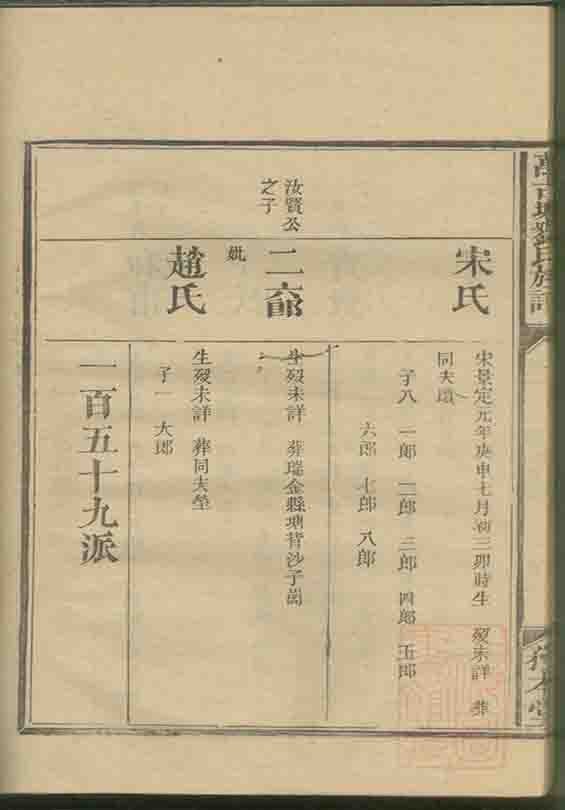 劉氏族譜
本堂
宋氏
宋景定元年庚申七月初三卯時生 歿未詳 葬
同夫墳
子八 一郎 二郎 三郎 四郎 五郎
六郎 七郎 八郎
汝賢公
之子
二六郎
生歿未詳 葬瑞金縣塘背沙子崗
妣
趙氏
生歿未詳 葬同夫塋
子一 大郎
一百五十九派